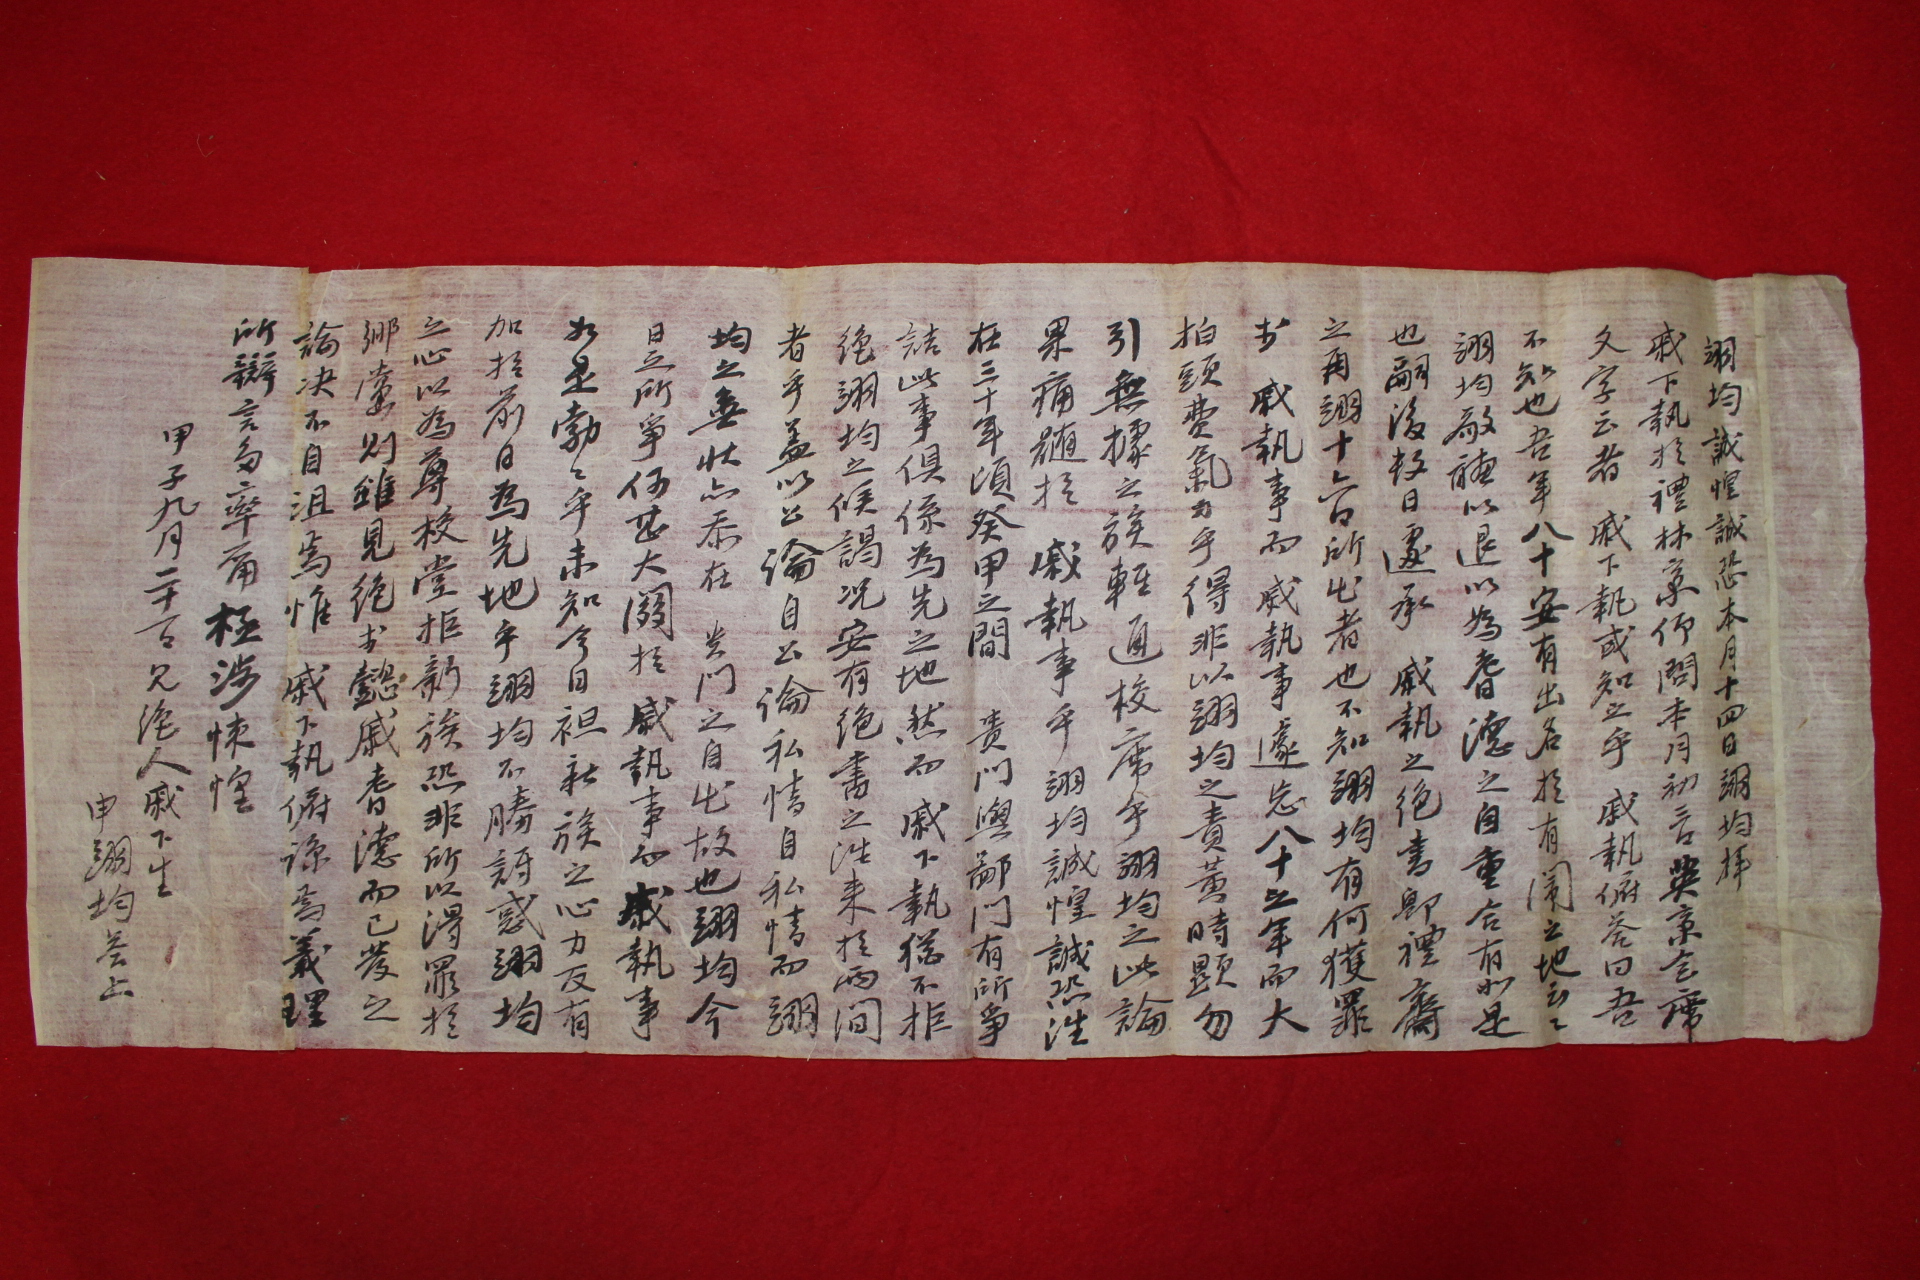 翊均誠惶誠恐本月十四日翊均拜
戚下執於禮林景仰問本月初吉與京会席
文字云者 戚下執或知之乎 戚執俯答曰吾
不知也吾年八十安有出名於有鬧之地云云
翊均敬聽以退以為耆德之自重合有如是
也嗣後数日遽承 戚執之絶書卽禮齋
之再翊十六日所出者也不知翊均有何獲罪
於 戚執事而 戚執事遽忘八十之年而大
拍頭費氣力乎得非以翊均之責黃時顯勿
引無據之族輕通校席乎翊均之此論
果痛髓於 戚執事乎翊均誠惶誠恐洼
在三十年頃癸甲之間 貴門與鄙門有所爭
詰此事俱係為先之地然而 戚下執猶不拒
絶翊均之候謁况安有絶書之洼来於兩間
者乎盖以公論自公論私情自私情而翊
均之無狀亦忝在 貴門之自出故也翊均今
日之所爭何甚大関於 戚執事而戚執事
如是勃々乎未知今日袒新族之心力反有
加於前日為先地乎翊均不勝訝惑翊均
之心以為尊校堂拒新族恐非所以得罪於
鄕黨則雖見絶於懿戚耆德而已發之
論决不自沮焉惟 戚下執俯諒焉義理
所辯言多率爾極涉悚惶
甲子九月二十一日見絶人戚下生
申翊均答上